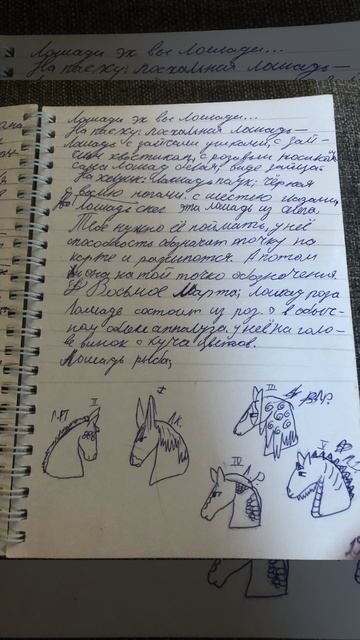 Лошади эх вы лошади...
На пасху: посхальная лошадь—
Лошади эх вы лошади...
На пасху: посхальная лошадь—
лошадь с зайсами ушками, с зай-
сим хвостиком, с розовым носиком
лошадь в виде зайца
На лошадь паук; чёрная
с восмю ногами. с шестью глазами
Лошадь снег эта лошадь из снега,
Тебе нужно её поймать, у неё
способность обозначит точку на
карте и разсыпотся. А потом
на той точке обозначения
Восьмое Марта; лошад роза
лошадь состоит из роз. в обыч-
ном аппалуза. у неё на голо-
ве винок с куча цветов.
Лошадь рыба;
I
II
III
IV
V